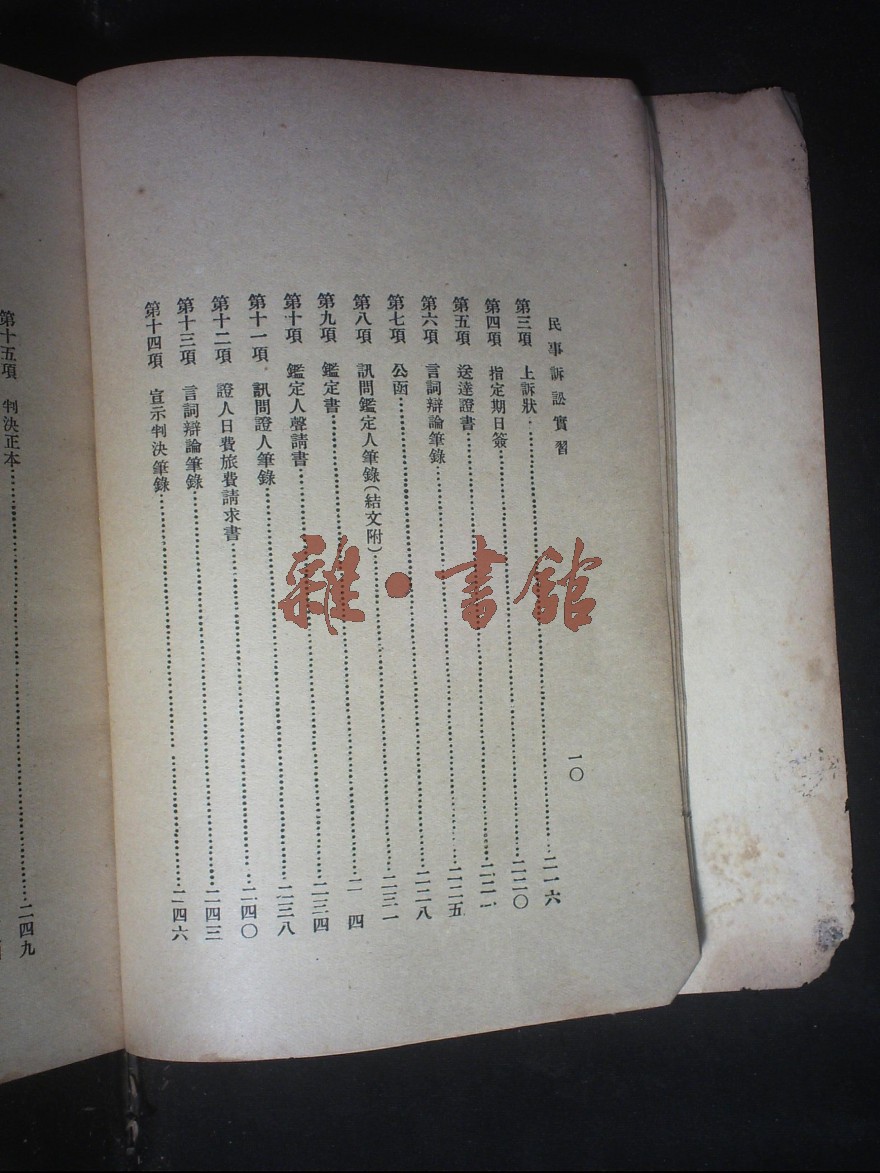 民事訴訟實習
一〇
第三項 上訴狀……二一六
第四項 指定期日簽……二二〇
第五項 送達證書……二二一
第六項 言詞辯論筆錄……二二五
第七項 公函……二二八
第八項 訊問鑑定人筆錄(結文附)……二三一
第九項 鑑定書……二 四
第十項 鑑定人聲請書……二三四
第十一項 訊問證人筆錄……二三八
第十二項 證人日費旅費請求書……二四〇
第十三項 言詞辯論筆錄……二四三
第十四項 宣示判決筆錄……二四六
第十五項 判決正本……二四九
雜·書館